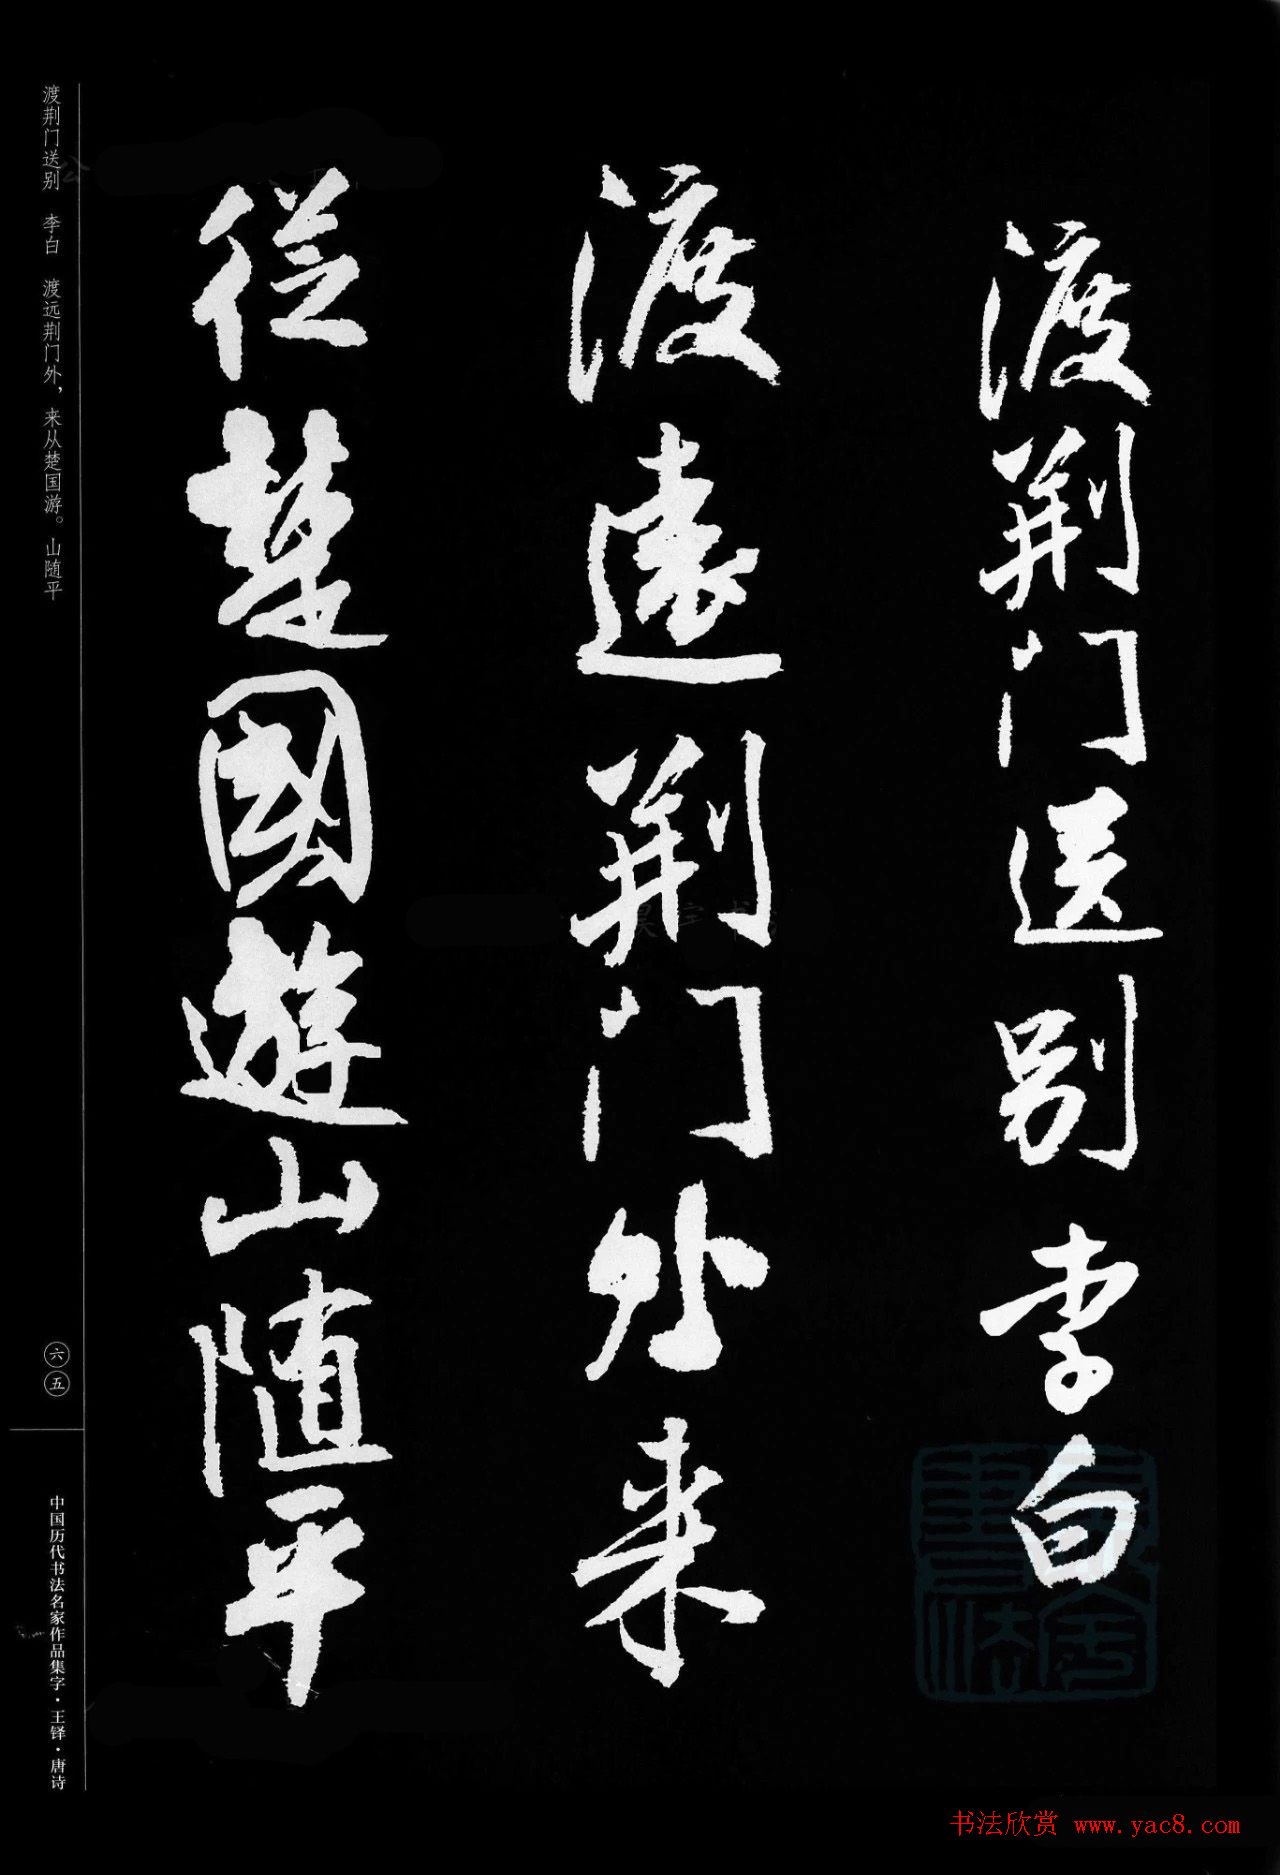 渡荆门送别李白
渡遠荆门外来
從楚國遊山随平
渡荆门送别 李白 渡远荆门外，来从楚国游。山随平
六五
中国历代书法名家作品集字·王铎·唐诗
书法欣赏 www.yac8.com